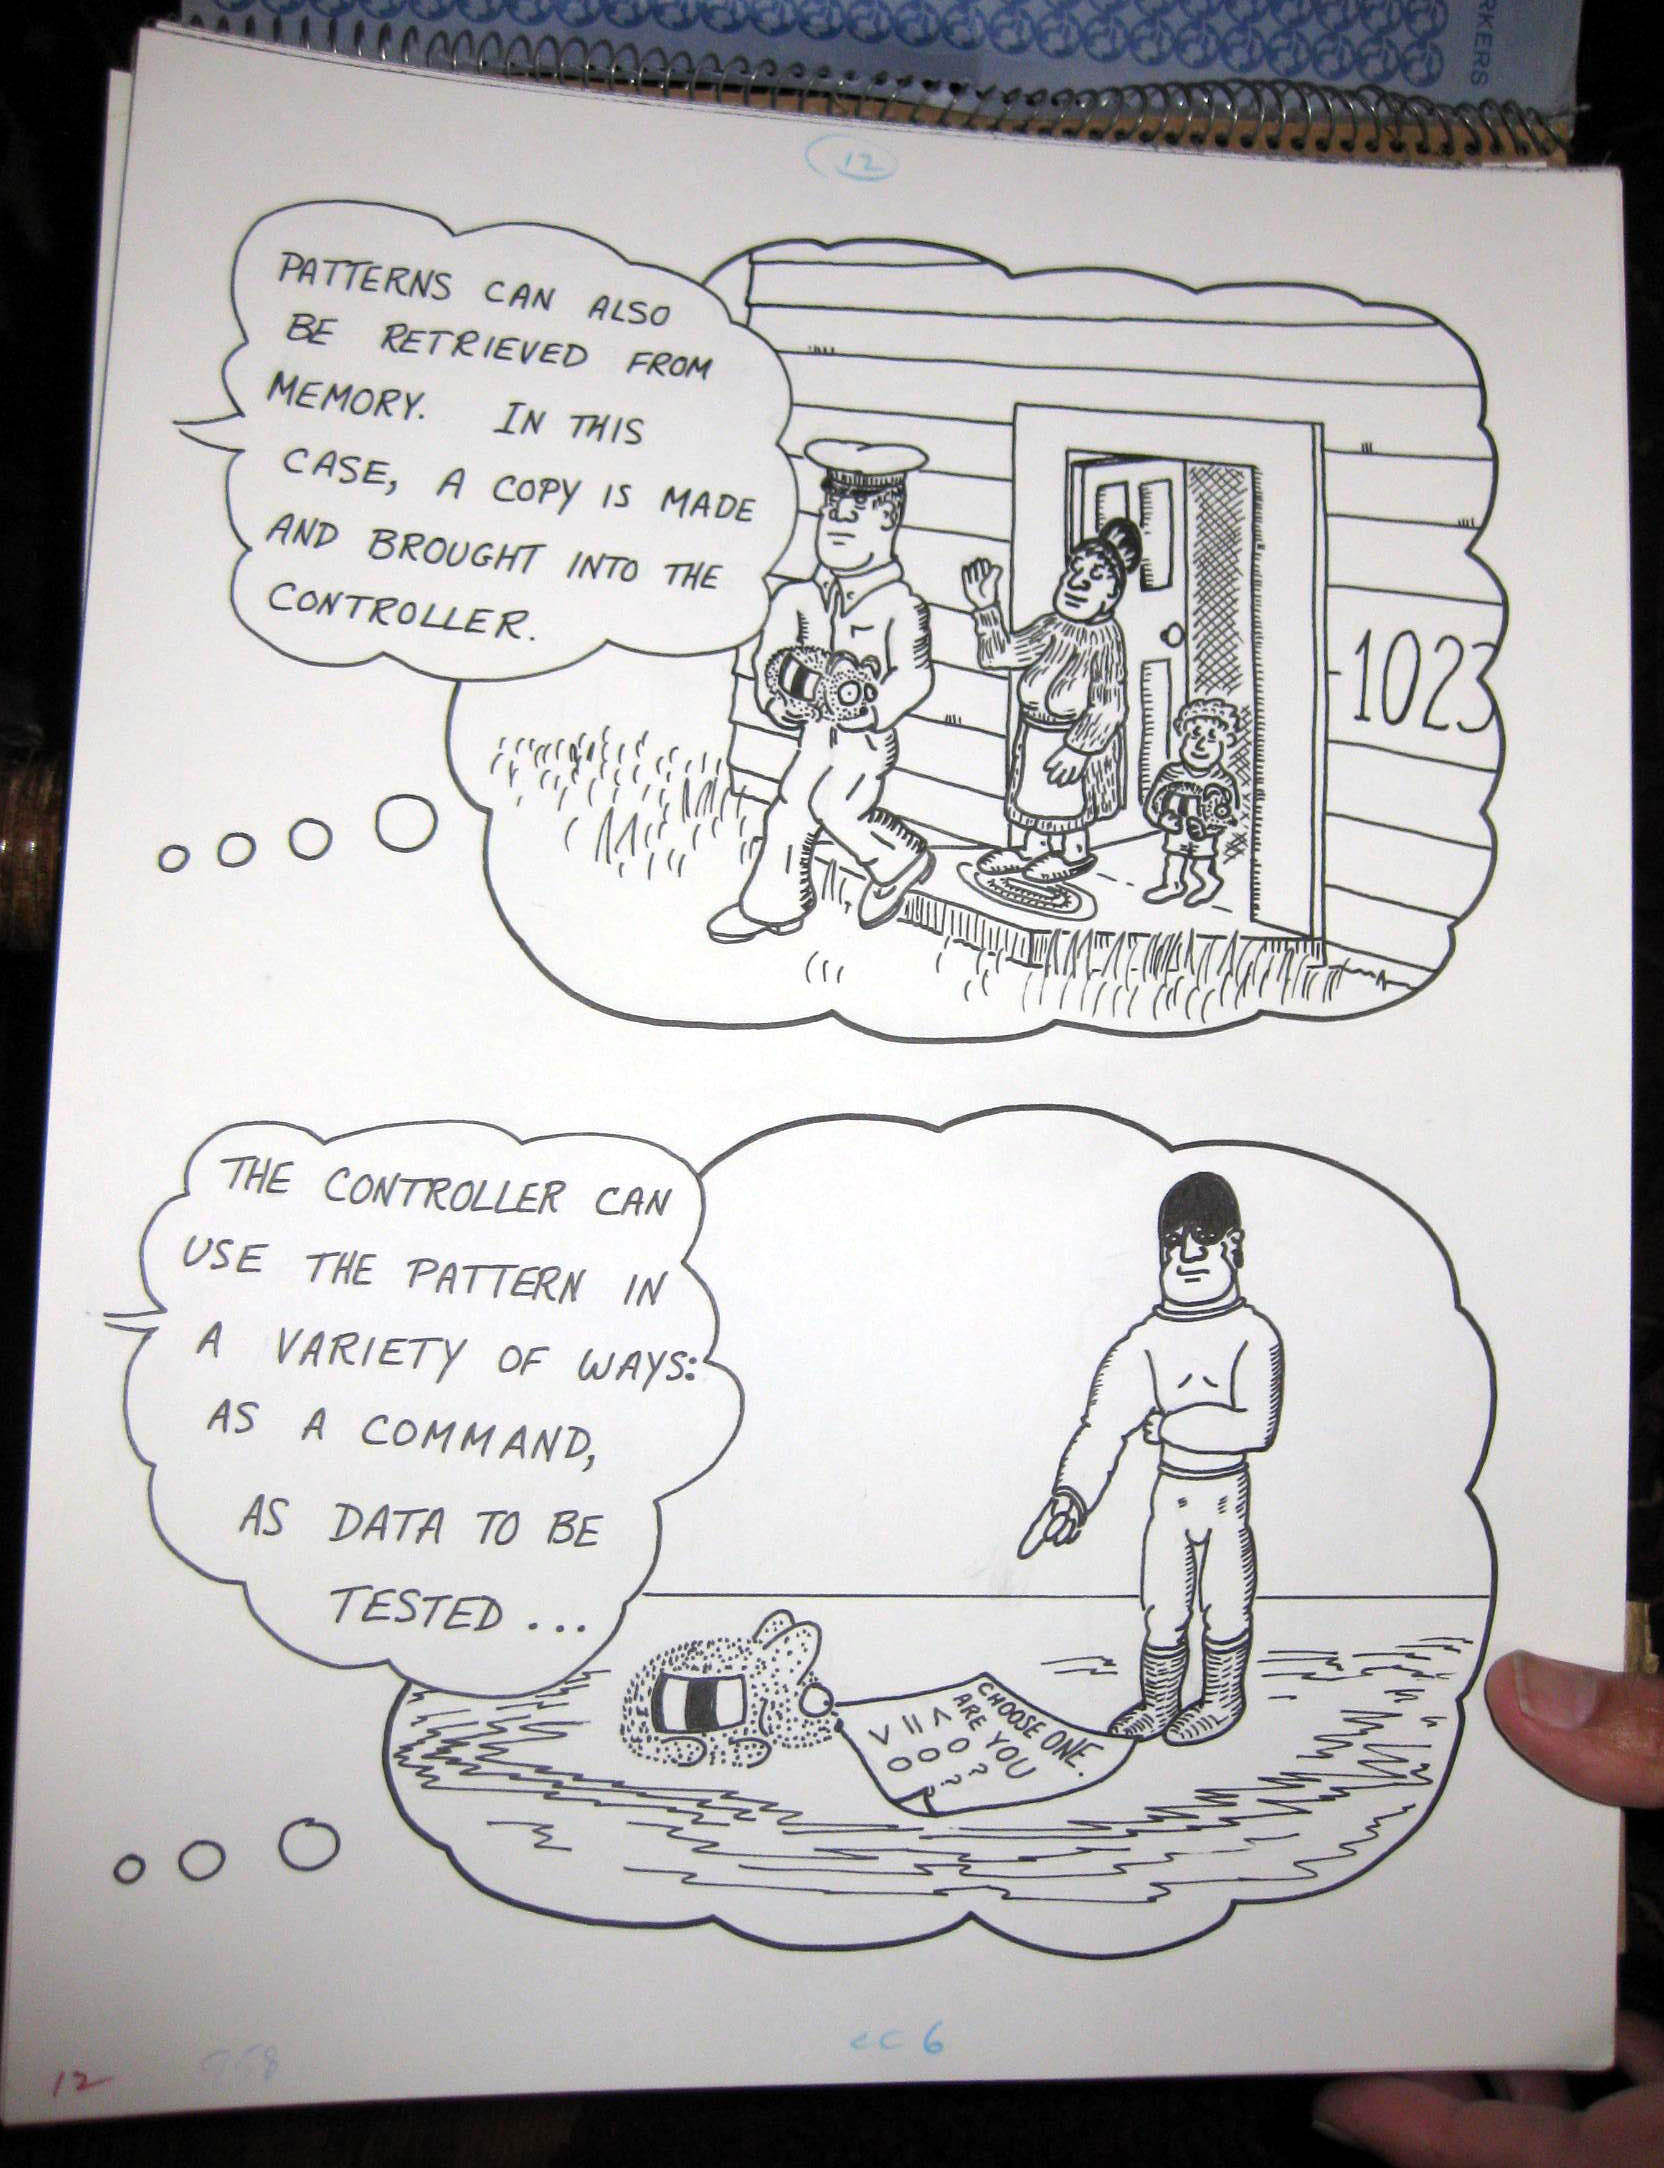 RKERS
12
PATTERNS CAN ALSO
BE RETRIEVED FROM
MEMORY. IN THIS
CASE, A COPY IS MADE
AND BROUGHT INTO THE
CONTROLLER.
1023
THE CONTROLLER CAN
USE THE PATTERN IN
A VARIETY OF WAYS:
AS A COMMAND,
AS DATA TO BE
TESTED...
CHOOSE ONE.
ARE YOU
< = >
0 0 0
? ? ?
CC 6
12